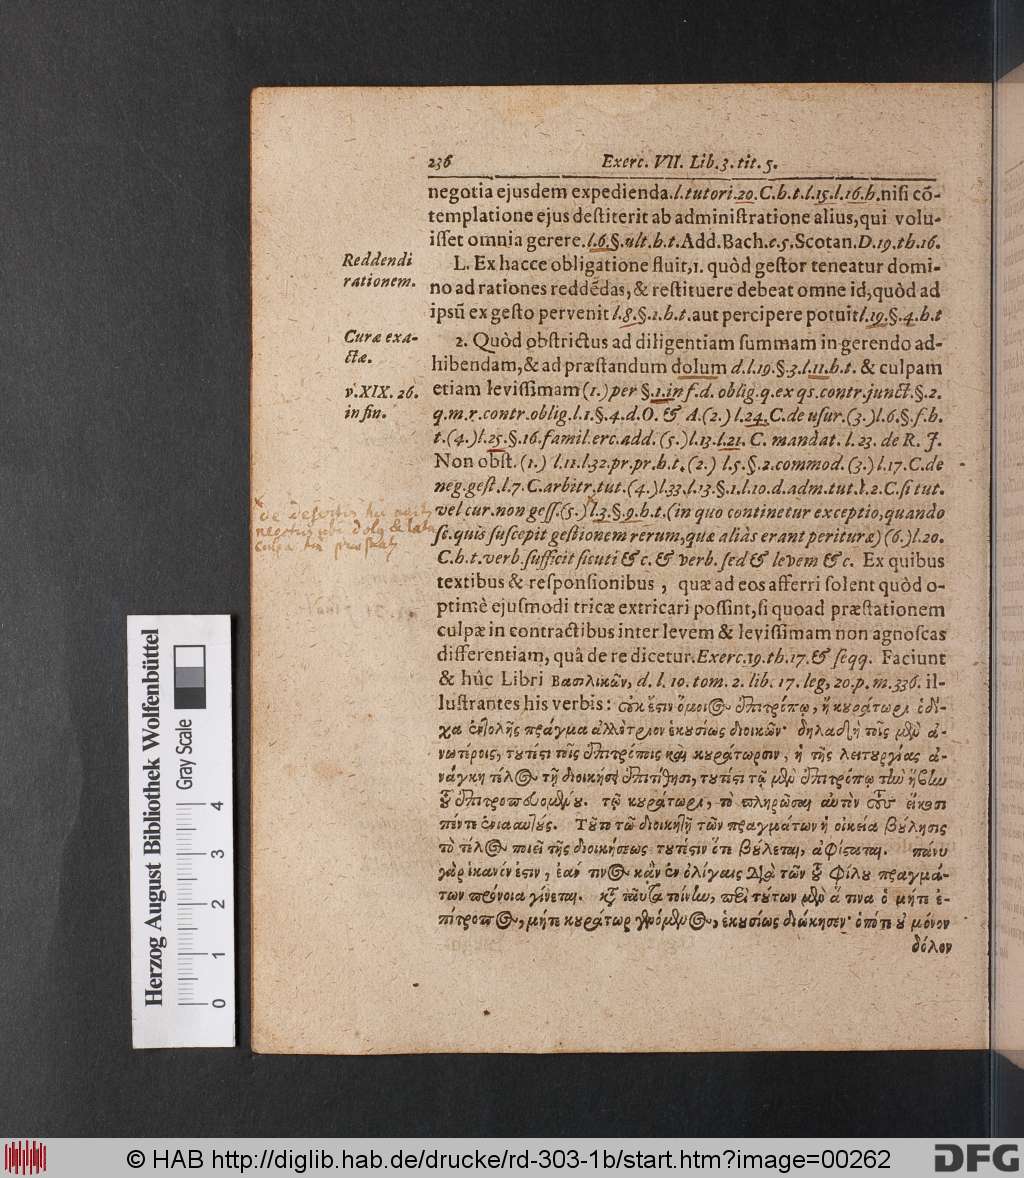 236 Exerc. VII. Lib. 3. tit. 5.
negotia ejusdem expedienda. l. tutori. 20. C. h. t. l. 15. l. 16. h. nisi cõ-
templatione ejus destiterit ab administratione alius, qui volu-
isset omnia gerere. l. 6. §. ult. h. t. Add. Bach. c. 5. Scotan. D. 19. th. 16.
Reddendi
rationem.
L. Ex hacce obligatione fluit, 1. quòd gestor teneatur domi-
no ad rationes reddẽdas, & restituere debeat omne id, quòd ad
ipsũ ex gesto pervenit l. 8. §. 1. h. t. aut percipere potuit l. 19. §. 4. h. t
Curæ exa-
ctæ.
v. XIX. 26.
in fin.
2. Quòd obstrictus ad diligentiam summam in gerendo ad-
hibendam, & ad præstandum dolum d. l. 19. §. 3. l. 11. h. t. & culpam
etiam levissimam (1.) per §. 1. in f. d. oblig. q. ex qs. contr. junct. §. 2.
q. m. r. contr. oblig. l. 1. §. 4. d. O. & A. (2.) l. 24. C. de usur. (3.) l. 6. §. f. h.
t. (4.) l. 25. §. 16. famil. erc. add. (5.) l. 13. l. 21. C. mandat. l. 23. de R. J.
Non obst. (1.) l. 11. l. 32. pr. pr. h. t. (2.) l. 5. §. 2. commod. (3.) l. 17. C. de
neg. gest. l. 7. C. arbitr. tut. (4.) l. 33. l. 13. §. 1. l. 10. d. adm. tut. l. 2. C. si tut.
vel cur. non gess. (5.) l. 3. §. 9. h. t. (in quo continetur exceptio, quando
se. quis suscepit gestionem rerum, quæ aliàs erant perituræ) (6.) l. 20.
C. h. t. verb. sufficit sicuti & c. & verb. sed & levem & c. Ex quibus
textibus & responsionibus, quæ ad eos afferri solent quòd o-
ptimè ejusmodi tricæ extricari possint, si quoad præstationem
culpæ in contractibus inter levem & levissimam non agnoscas
differentiam, quâ de re dicetur. Exerc. 19. th. 17. & seqq. Faciunt
& hûc Libri Βασιλικῶν, d. l. 10. tom. 2. lib. 17. leg, 20. p. m. 336. il-
lustrantes his verbis: οὐκ ἔστιν ὅμοιος ἐπιτρόπῳ, ἢ κυράτωρι ὁ δί-
χα ἐντολῆς πρᾶγμα ἀλλότριον ἑκουσίως διοικῶν·
ἀνάγκη τέλος τῇ διοικήσει ἐπιτίθησι, τουτέστι τῷ μὲν ἐπιτρόπῳ τὴν ἥβην
πέντε ἐνιαυτούς. Τοῦτο τῶ διοικητῇ τῶν πραγμάτων ἡ οἰκεία βούλησις
τὸ τέλος ποιεῖ τῆς διοικήσεως τουτέστιν ὅτε βούλεται, ἀφίσταται. πάνυ
των πρόνοια γίνεται.
πίτροπος, μήτε κυράτωρ γενόμενος, ἑκουσίως διώκησεν· ὁπότε οὐ μόνον
δόλον
Herzog August Bibliothek Wolfenbüttel
Gray Scale
0 1 2 3 4
© HAB http://diglib.hab.de/drucke/rd-303-1b/start.htm?image=00262
DFG